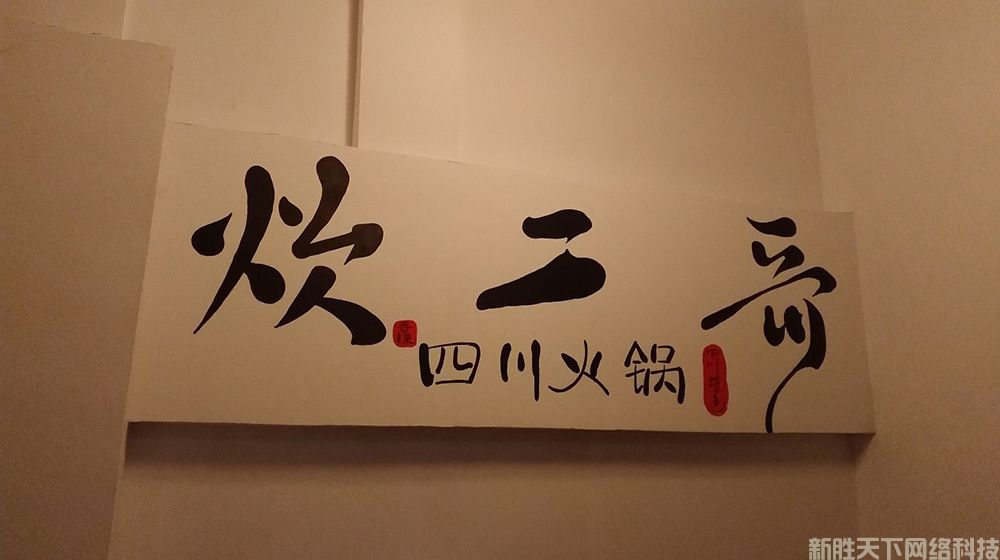 炊二哥
四川火锅
新胜天下网络科技